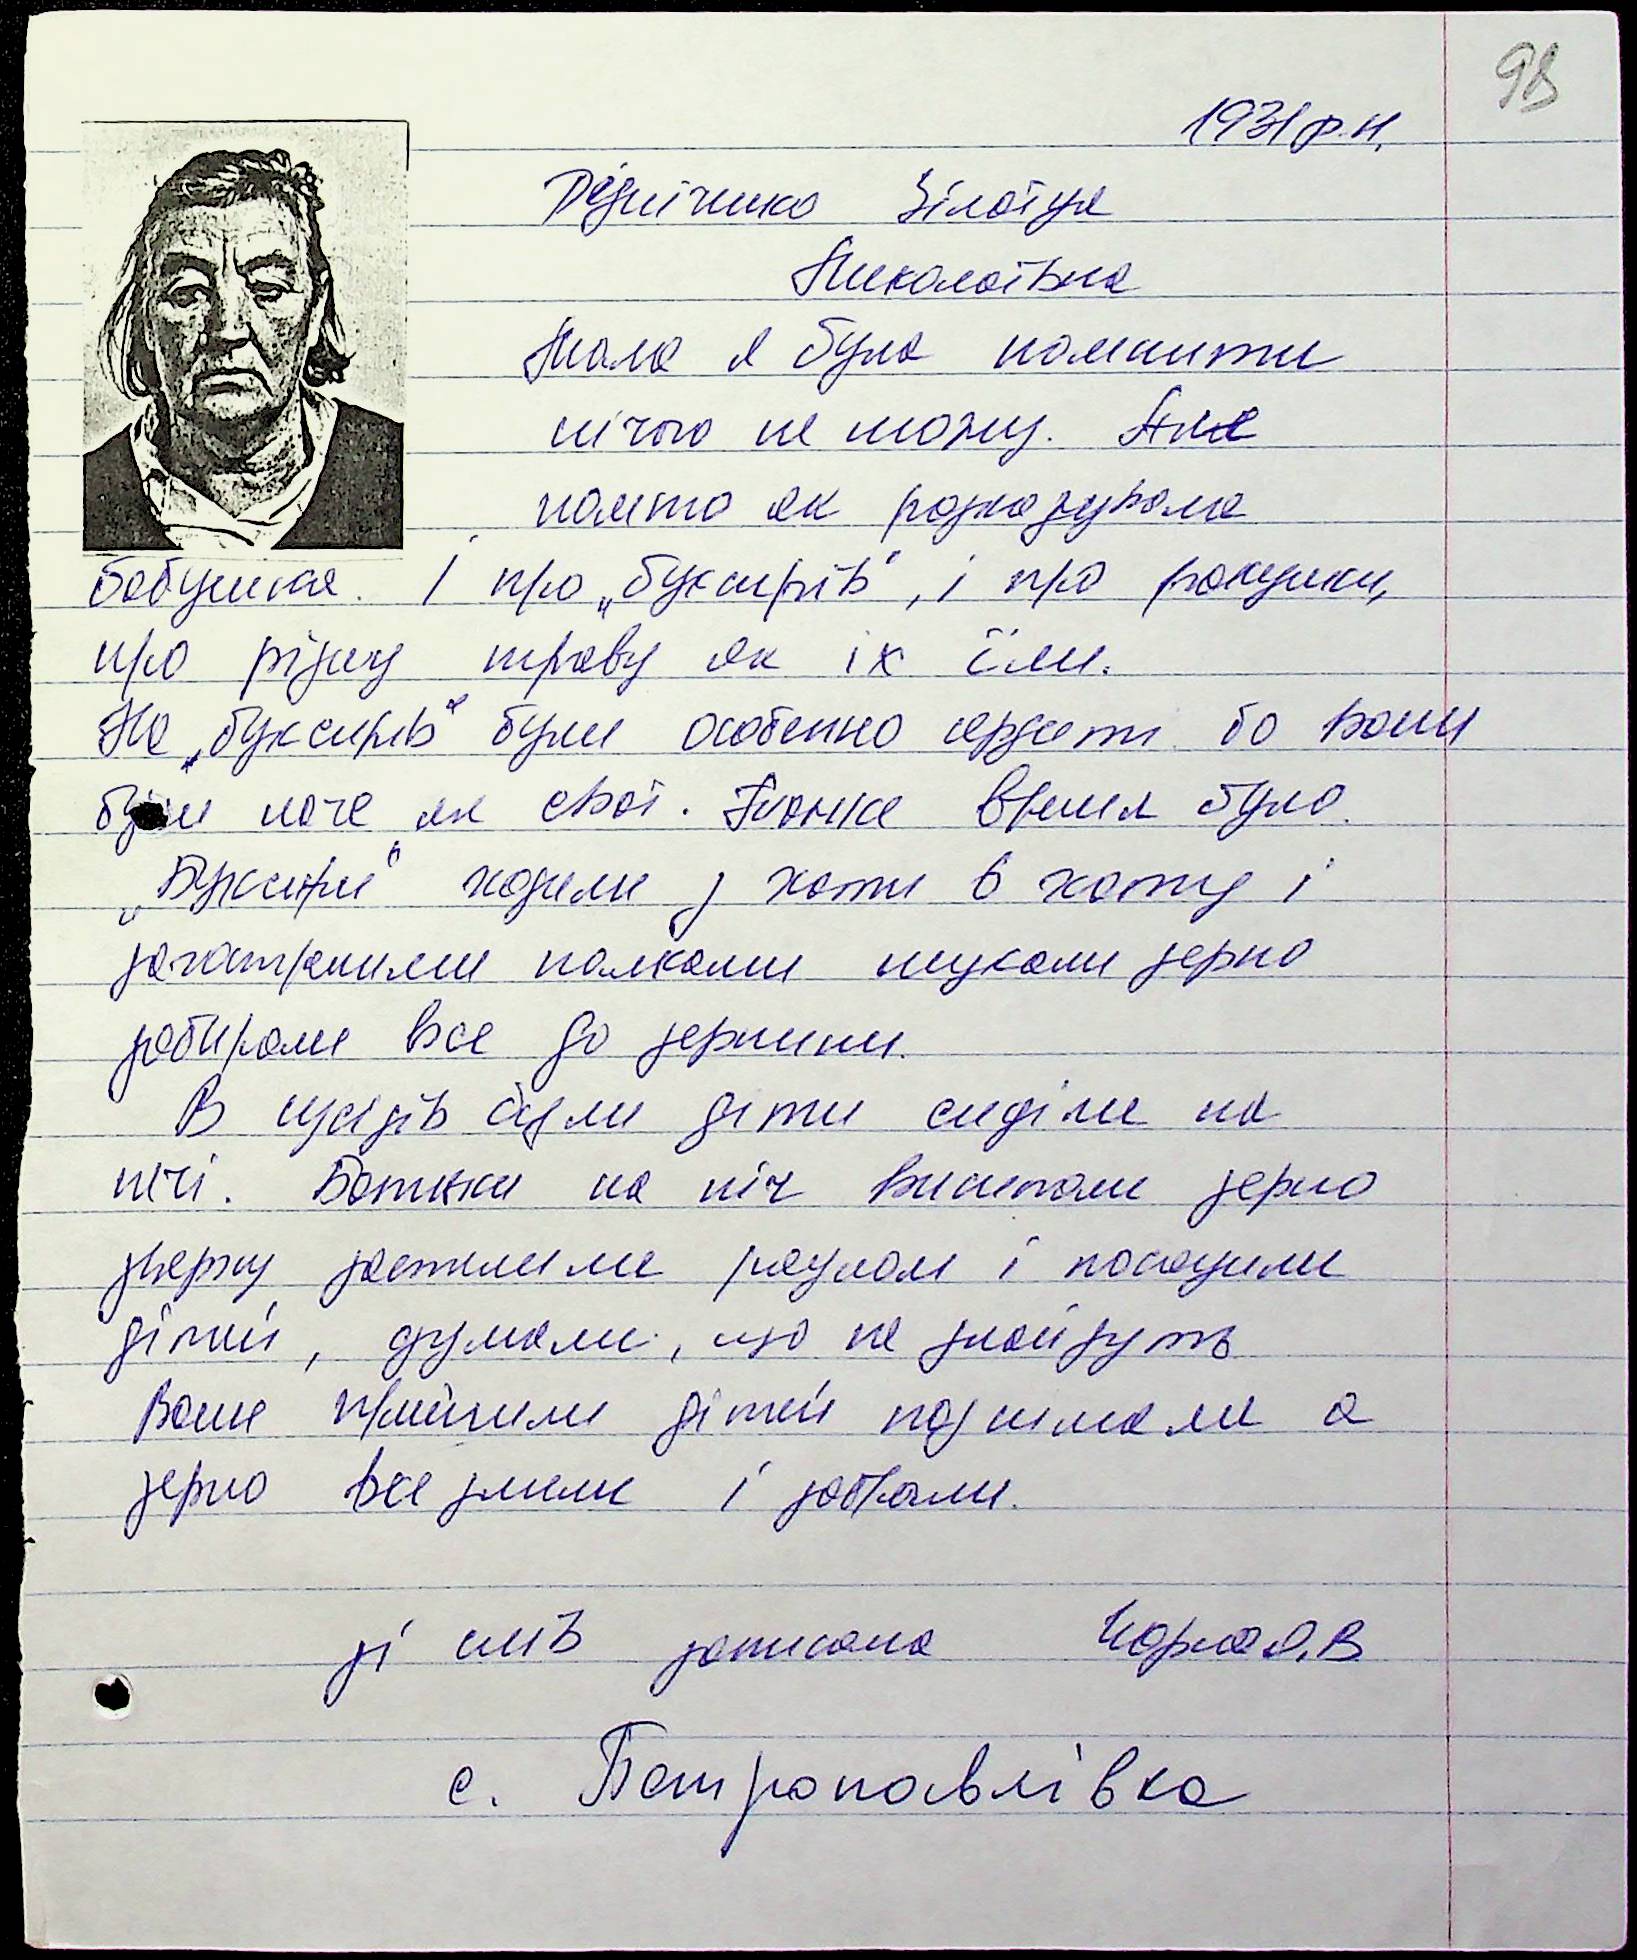 98
1931 р.н.
Зінаїда
Миколаївна
Мала я була помнити
нічого не можу. Але
помню як розказувала
бабушка. І про „буксирів“, і про ракушки,
про різну траву як їх їли.
На „буксирів“ були особенно сердиті бо вони
були наче як свої. Тяжке врем'я було.
„Буксири“ ходили з хати в хату і
загостреними палками шукали зерно
забирали все до зернини.
В сусідів були діти сиділи на
печі. Батьки на піч висипали зерно
зверху застелили рядном і посадили
дітей, думали, що не знайдуть
Вони прийшли дітей поднимали а
зерно все змели і забрали.
зі слів записала Чорна О.В.
с. Петропавлівка